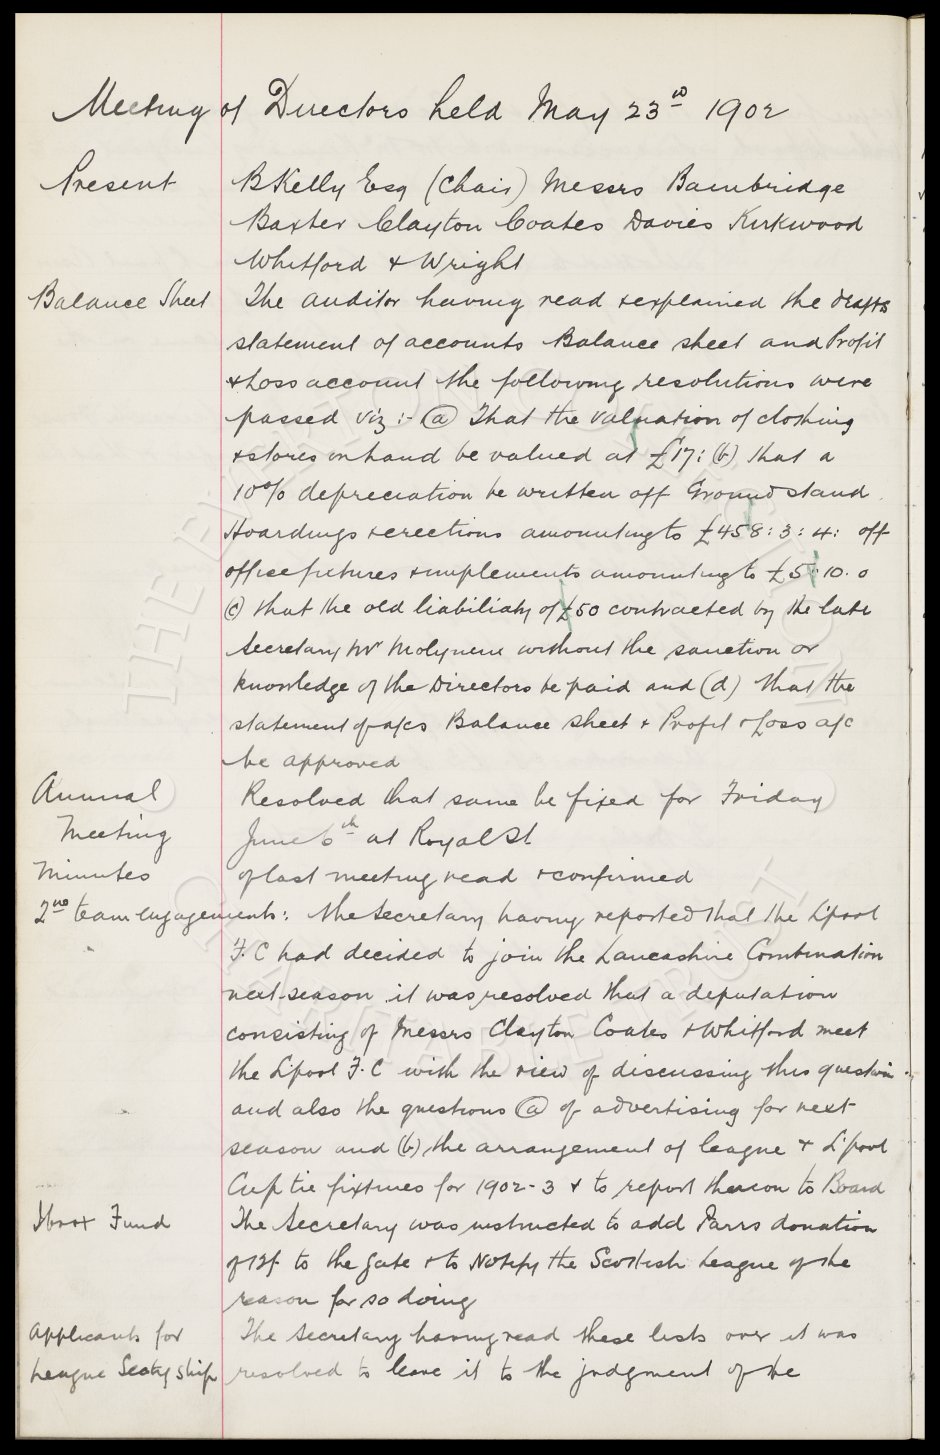 Meeting of Directors held May 23rd 1902
Present B Kelly Esq (Chair) Messrs Bainbridge
Baxter Clayton Coates Davies Kirkwood
Whitford & Wright
Balance Sheet The auditor having read & explained the drafts
statement of accounts Balance sheet and Profit
& Loss account the following resolutions were
passed viz :- (a) That the valuation of clothing
& stores on hand be valued at £17: (b) that a
10% depreciation be written off Ground stand
Hoardings & erections amounting to £458:3:4: off
office fixtures & implements amounting to £5.10.0
(c) that the old liability of £50 contracted by the late
Secretary Mr Molyneux without the sanction or
knowledge of the Directors be paid and (d) that the
statement of a/cs Balance sheet & Profit & Loss a/c
be approved
Annual Resolved that same be fixed for Friday
Meeting June 6th at Royal St
Minutes of last meeting read & confirmed
2nd team engagements: The Secretary having reported that the L'pool
F.C had decided to join the Lancashire Combination
next season it was resolved that a deputation
consisting of Messrs Clayton Coates & Whitford meet
the L'pool F.C with the view of discussing this question
and also the questions (a) of advertising for next
season and (b) the arrangement of league & L'pool
Cup tie fixtures for 1902-3 & to report thereon to Board
Ibrox Fund The Secretary was instructed to add Parrs donation
of 12/- to the gate & to Notify the Scottish League of the
reason for so doing
Applicants for The Secretary having read these lists over it was
League Sectyship resolved to leave it to the judgment of the